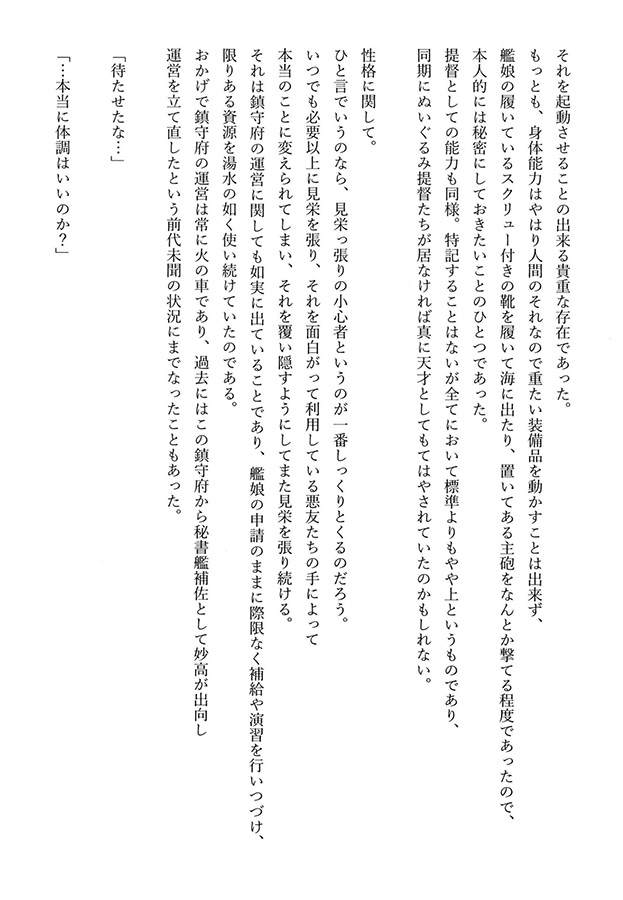 それを起動させることの出来る貴重な存在であった。
もっとも、身体能力はやはり人間のそれなので重たい装備品を動かすことは出来ず、
艦娘の履いているスクリュー付きの靴を履いて海に出たり、置いてある主砲をなんとか撃てる程度であったので、
本人的には秘密にしておきたいことのひとつであった。
提督としての能力も同様。特記することはないが全てにおいて標準よりもやや上というものであり、
同期にぬいぐるみ提督たちが居なければ真に天才としてもてはやされていたのかもしれない。
性格に関して。
ひと言でいうのなら、見栄っ張りの小心者というのが一番しっくりとくるのだろう。
いつでも必要以上に見栄を張り、それを面白がって利用している悪友たちの手によって
本当のことに変えられてしまい、それを覆い隠すようにしてまた見栄を張り続ける。
それは鎮守府の運営に関しても如実に出ていることであり、艦娘の申請のままに際限なく補給や演習を行いつづけ、
限りある資源を湯水の如く使い続けていたのである。
おかげで鎮守府の運営は常に火の車であり、過去にはこの鎮守府から秘書艦補佐として妙高が出向し
運営を立て直したという前代未聞の状況にまでなったこともあった。
「待たせたな…」
「…本当に体調はいいのか？」